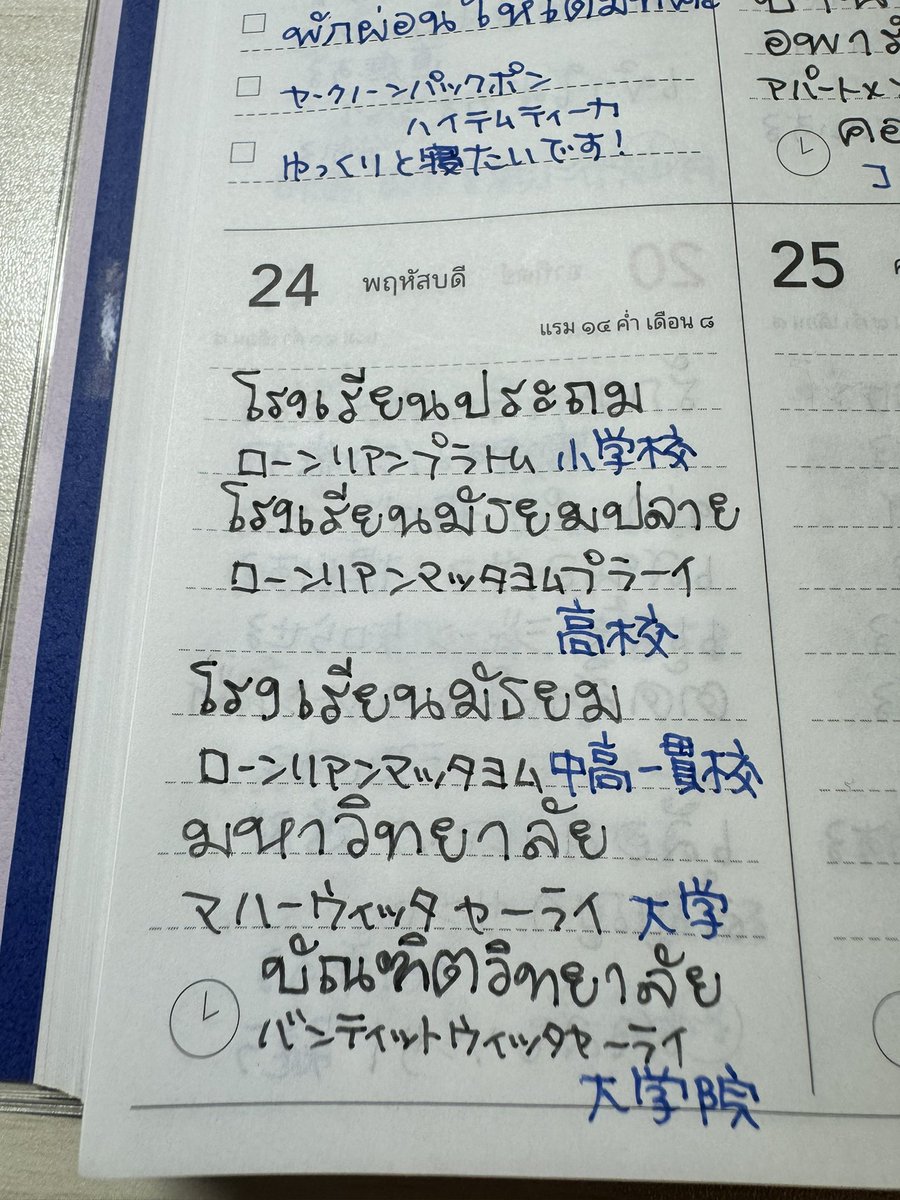 พักผ่อน
ヤークノーンパックポン
ハイテムティーカ
ゆっくりと寝たいです!
อพาร์
アパートメン
คอ
コ
24 พฤหัสบดี
แรม ๑๔ ค่ำ เดือน ๘
โรงเรียนประถม
ローンリアンプラトム 小学校
โรงเรียนมัธยมปลาย
ローンリアンマッタヨムプラーイ
高校
โรงเรียนมัธยม
ローンリアンマッタヨム 中高一貫校
มหาวิทยาลัย
マハーウィッタヤーライ 大学
บัณฑิตวิทยาลัย
バンディットウィッタヤーライ
大学院
25